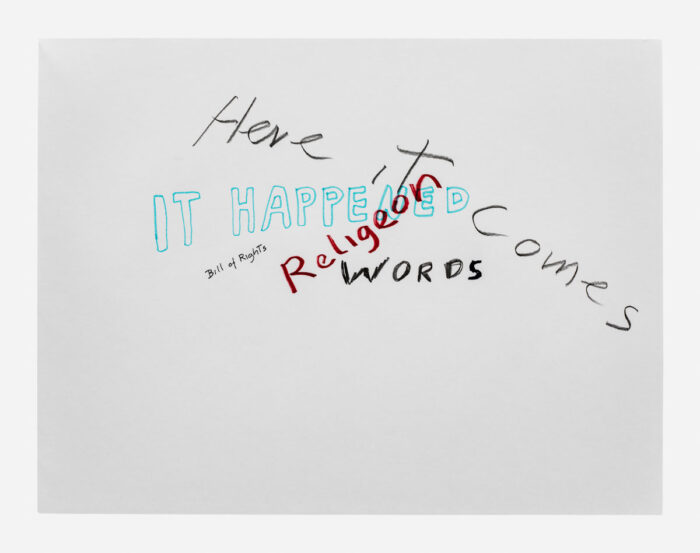 Here it Comes
IT HAPPENED
Religeon
Bill of Rights
WORDS